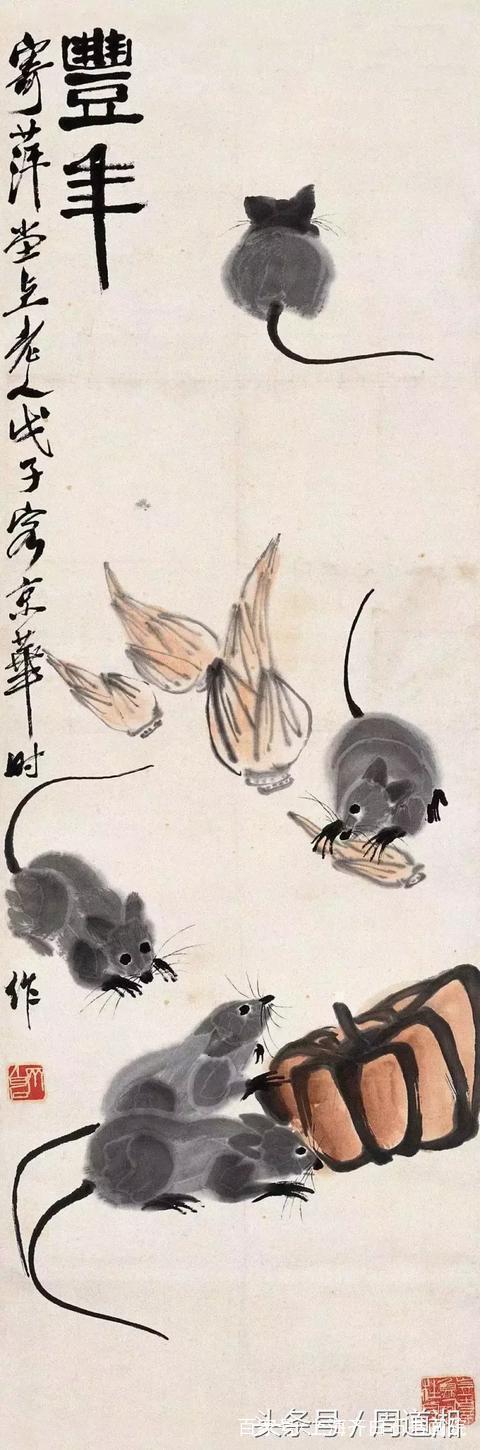 豐年
寄萍堂上老人戊子客京華时作
头条号 / 周道湘